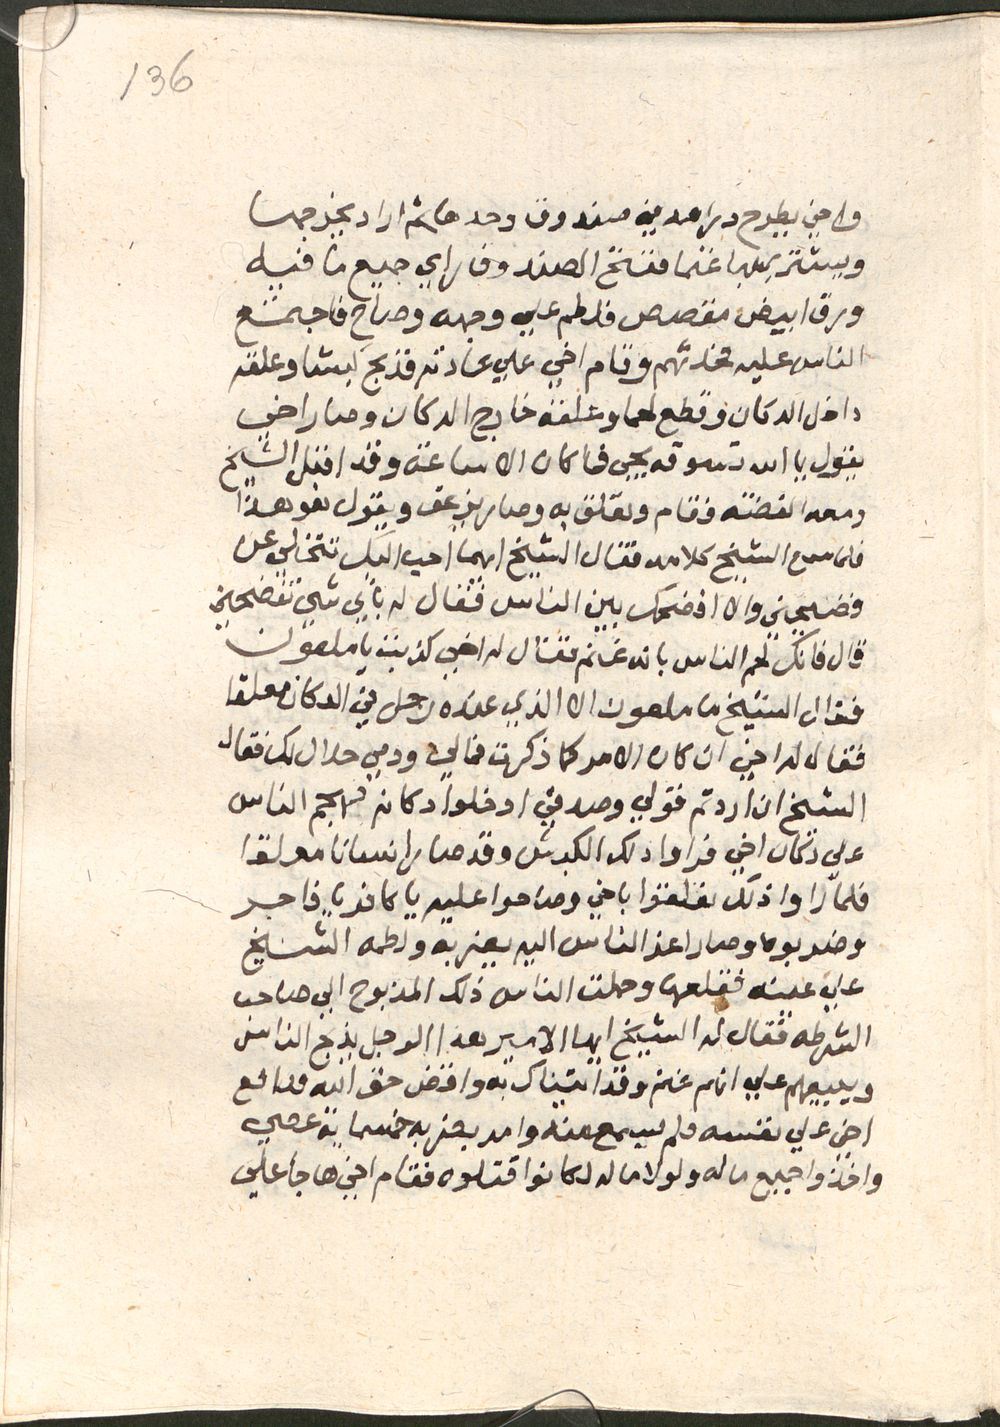 136
واخي يطرح دراهمه في صندوق وحدها ثم اراد يخرجها
ويشتري بها غنما ففتح الصندوق فراي جميع ما فيه
ورق ابيض مقصص فلطم علي وجهه وصاح فاجتمع
الناس عليه فحدثهم وقام اخي علي عادته فذبح كبشا وعلقه
داخل الدكان وقطع لحما وعلقه خارج الدكان وصار اخي
يقول يا الله تسوقه يجي فما كان الا ساعة وقد اقبل الشيخ
ومعه الفضه فقام وتعلق به وصار يزعق ويقول هو هذا
فلما سمع الشيخ كلامه فقال الشيخ ايما احب اليك تتخلي عن
فضيحتي والا افضحك بين الناس فقال له باي شي تفضحني
قال فانك لحم الناس بانه غنم فقال له اخي كذبت يا ملعون
فقال الشيخ ما ملعون الا الذي عنده رجل في الدكان معلقا
فقال له اخي ان كان الامر كما ذكرت فمالي ودمي حلال لك فقال
الشيخ ان اردتم قولي وصدقي ادخلوا دكانه فهجم الناس
علي دكان اخي فراوا ذلك الكبش وقد صار انسانا معلقا
فلما راوا ذلك تعلقوا باخي وصاحوا عليه يا كافر يا فاجر
وضربوه وصار اعز الناس اليه يضربه ولطمه الشيخ
علي عينه فقلعها وحملت الناس ذلك المذبوح الي صاحب
الشرطه فقال له الشيخ ايها الامير هذا الرجل يذبح الناس
ويبيعهم علي انهم غنم وقد اتيناك به واقض حق الله فدافع
اخي علي نفسه فلم يسمع منه وامر بضربه خمسماية عصي
واخذوا جميع ماله ولولا ماله لكانوا قتلوه فقام اخي هاجا علي